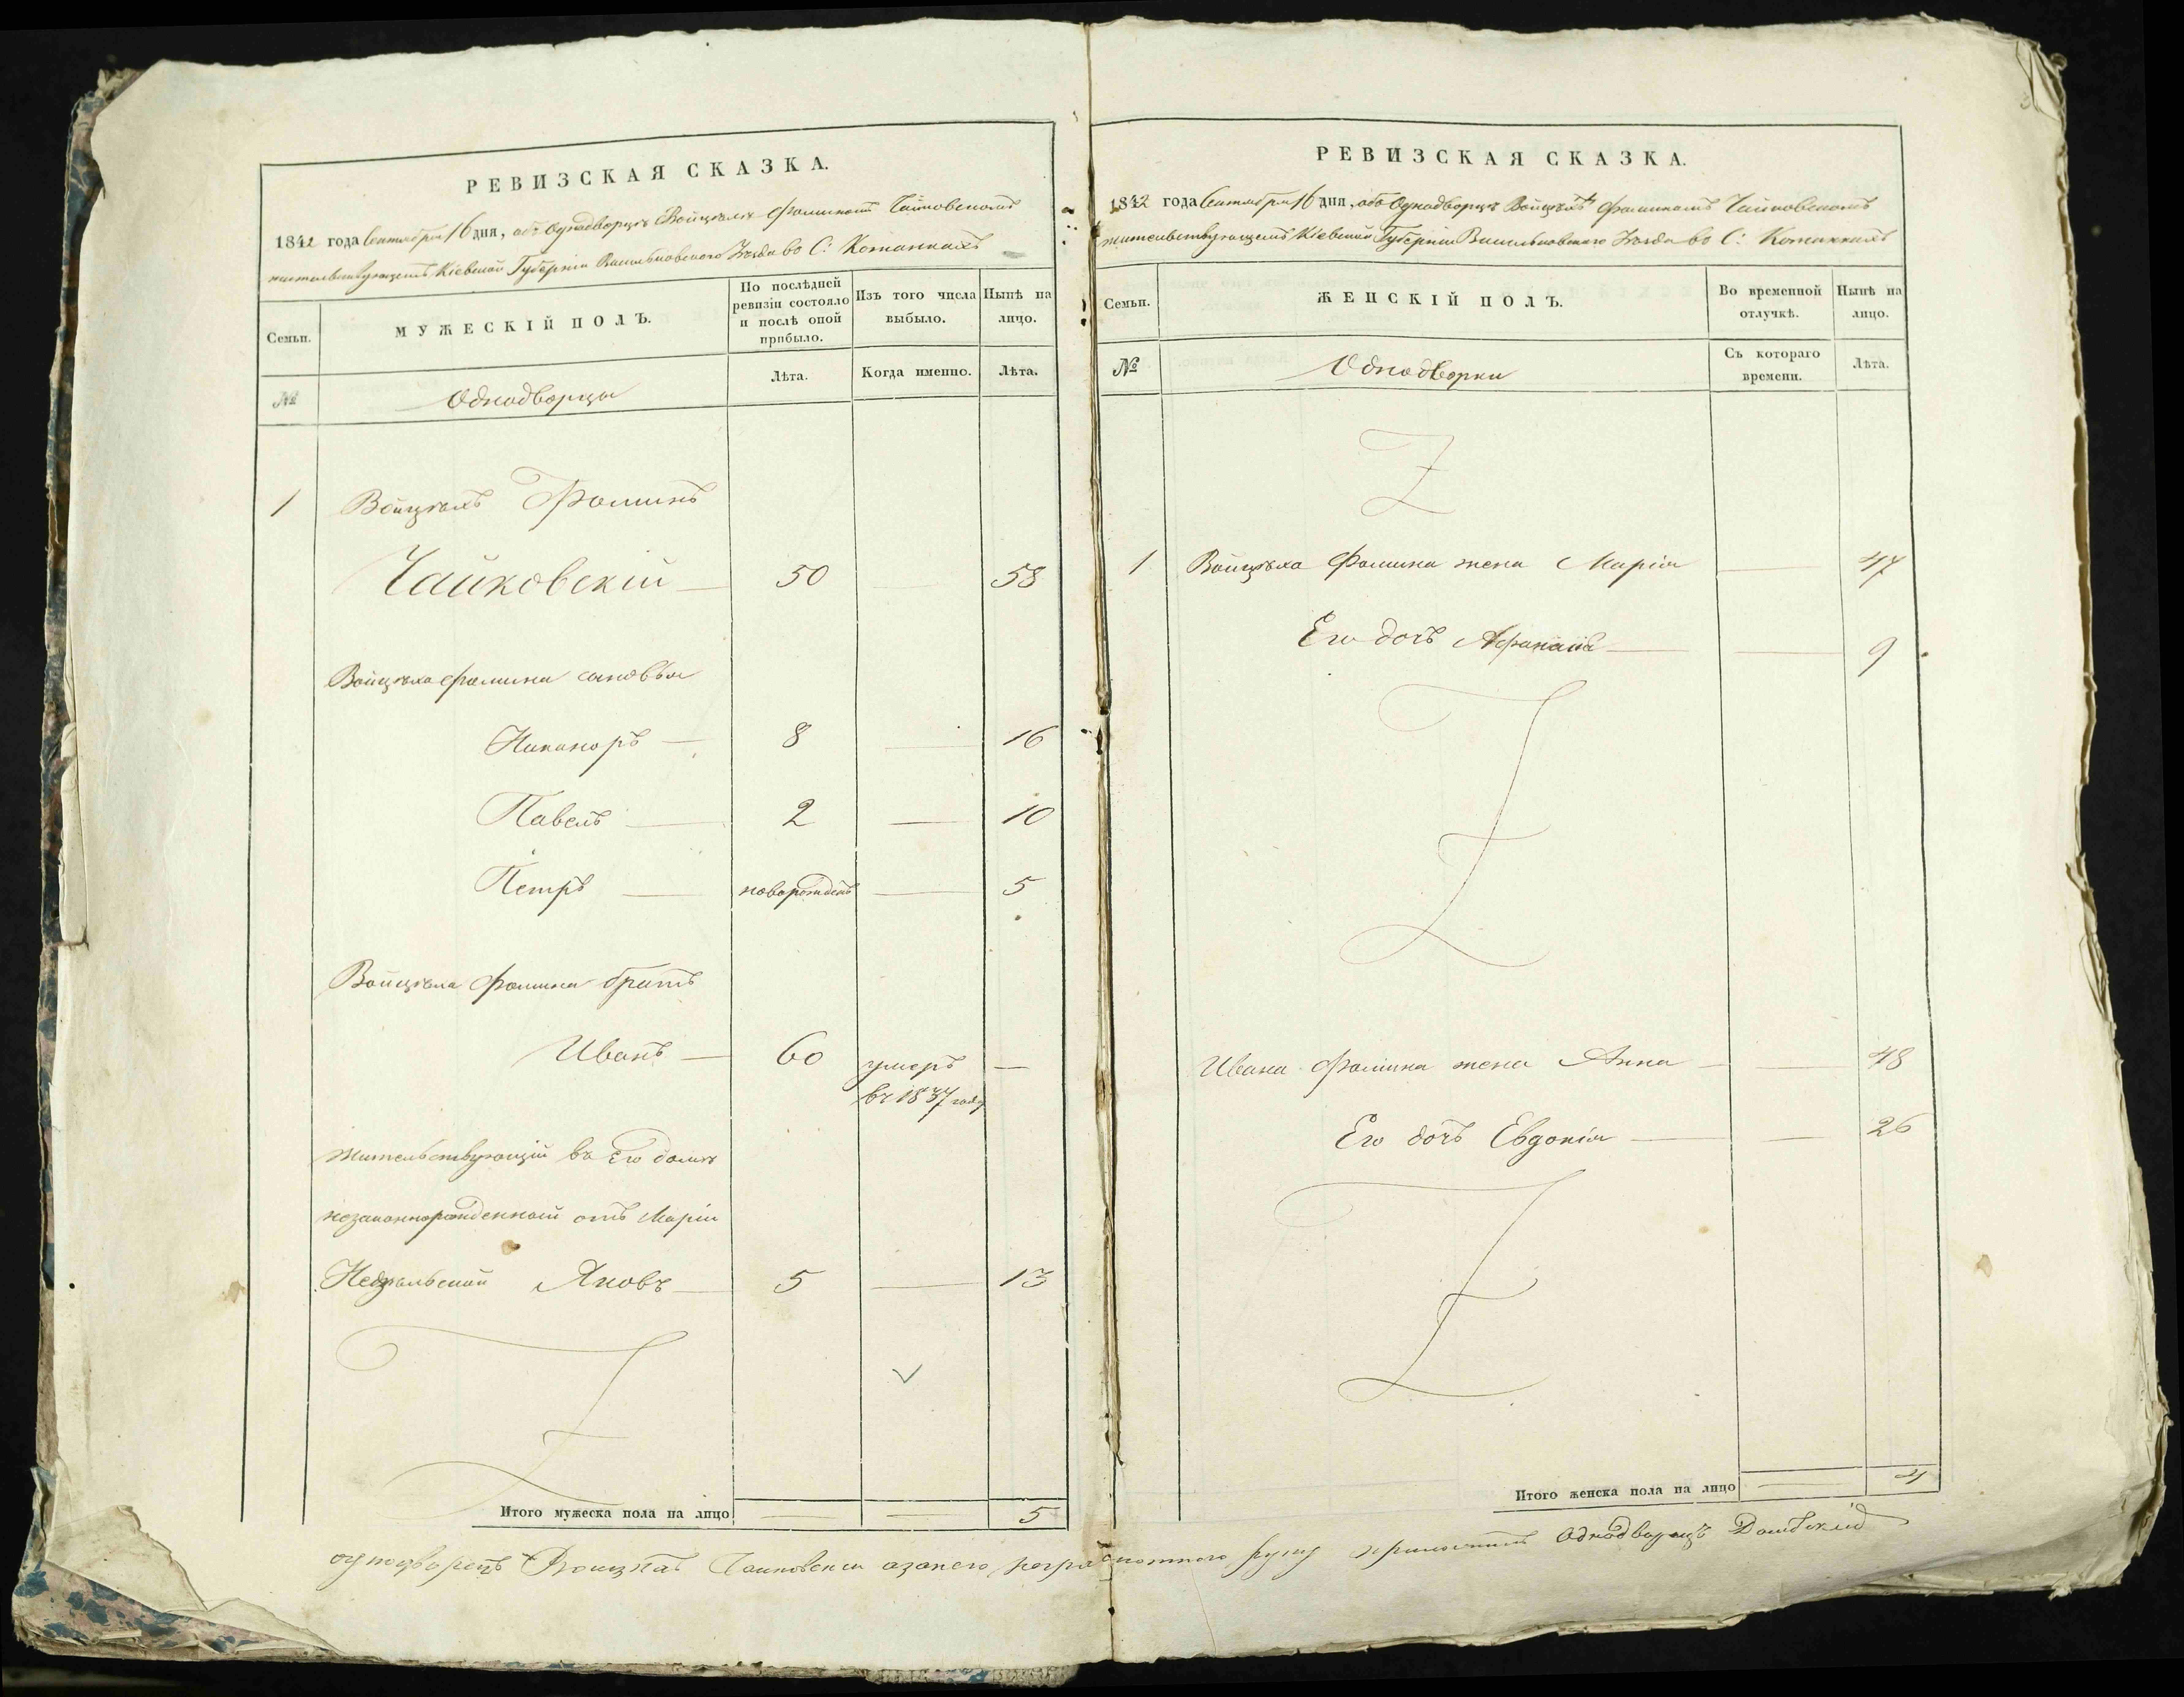 РЕВИЗСКАЯ СКАЗКА.
1842 года Сентября 16 дня, объ Однодворцѣ Войцѣхѣ Фоминомъ Чайковскомъ
жительствующемъ Кіевской Губерніи Васильковскаго Уѣзда во С: Кожанкахъ
Семьи.
МУЖЕСКІЙ ПОЛЪ.
По послѣдней ревизіи состояло и послѣ оной прибыло.
Изъ того числа выбыло.
Нынѣ на лицо.
№
Однодворцы
Лѣта.
Когда именно.
Лѣта.
1 Войцѣхъ Фоминъ
Чайковскій — 50 58
Войцѣха Фомина сыновья
Никаноръ — 8 — 16
Павелъ — 2 — 10
Петръ — новорожденъ — 5
Войцѣха Фомина братъ
Иванъ — 60 умеръ —
въ 1837 году
Жительствующій въ Его домѣ
незаконнорожденный отъ Маріи
Яковъ — 5 — 13
Итого мужеска пола на лицо — — 5
РЕВИЗСКАЯ СКАЗКА.
1842 года Сентября 16 дня, объ Однодворцѣ Войцѣхѣ Фоминомъ Чайковскомъ
жительствующемъ Кіевской Губерніи Васильковскаго Уѣзда во С: Кожанкахъ
Семьи.
ЖЕНСКІЙ ПОЛЪ.
Во временной отлучкѣ.
Нынѣ на лицо.
№
Однодворки
Съ котораго времени.
Лѣта.
1 Войцѣха Фомина жена Марія — 47
Его дочь — — 9
Ивана Фомина жена Анна — — 48
Его дочь Евдокія — — 26
Итого женска пола на лицо — 4
однодворецъ Войцехъ Чайковски азанего неграмотного руку приложилъ Однодворецъ